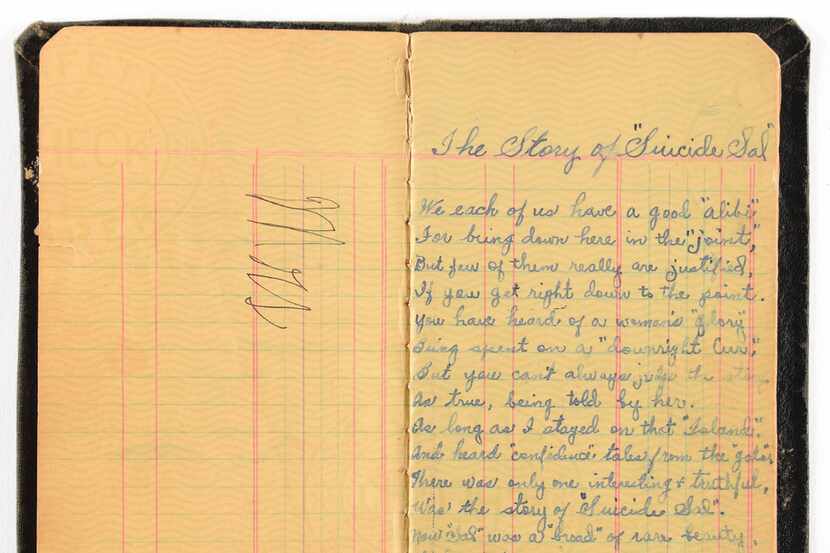 The Story of "Suicide Sal"
We each of us have a good "alibi"
For being down here in the "joint",
But few of them really are justified,
If you get right down to the point.
You have heard of a woman's "glory"
Being spent on a "downright Cur",
But you can't always judge the story
As true, being told by her.
As long as I stayed on that "Island",
And heard "confidence" tales from the "gals",
There was only one interesting & truthful,
Was the story of "Suicide Sal".
Now "Sal" was a "broad" of rare beauty,